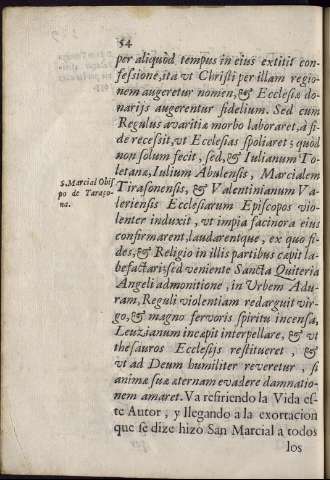 54
per aliquod tempus in eius extitit con-
fessione, ita vt Christi per illam regio-
nem augeretur nomen, & Ecclesiæ do-
narijs augerentur fidelium. Sed cum
Regulus avaritiæ morbo laboraret, à fi-
de recessit, vt Ecclesias spoliaret; quod
non solum fecit, sed, & Iulianum To-
letanæ, Iulium Abulensis, Marcialem
Tirasonensis, & Valentinianum Va-
leriensis Ecclesiarum Episcopos vio-
lenter induxit, vt impia facinora eius
confirmarent, laudarentque, ex quo fi-
des, & Religio in illis partibus cœpit la-
befactari; sed veniente Sancta Quiteria
Angeli admonitione, in Vrbem Adu-
ram, Reguli violentiam redarguit vir-
go, & magno fervoris spiritu incensa,
Leuzianum incœpit interpellare, & vt
thesauros Ecclesijs restitueret, &
vt ad Deum humiliter reveretur, si
animæ suæ æternam evadere damnatio-
nem amaret. Va refiriendo la Vida es-
te Autor, y llegando a la exortacion
que se dize hizo San Marcial a todos
los
S. Marcial Obis
po de Taraço-
na.